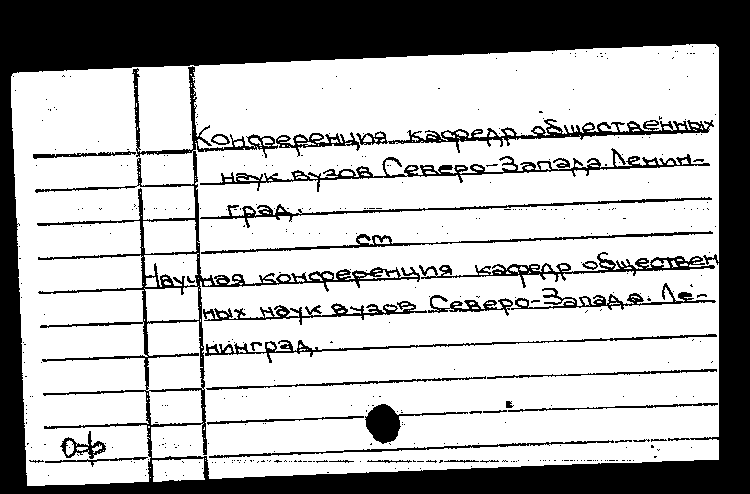 Конференция кафедр общественных
наук вузов Северо-Запада. Ленин-
град.
от
Научная конференция кафедр обществен
ных наук вузов Северо-Запада. Ле-
нинград.
Оф